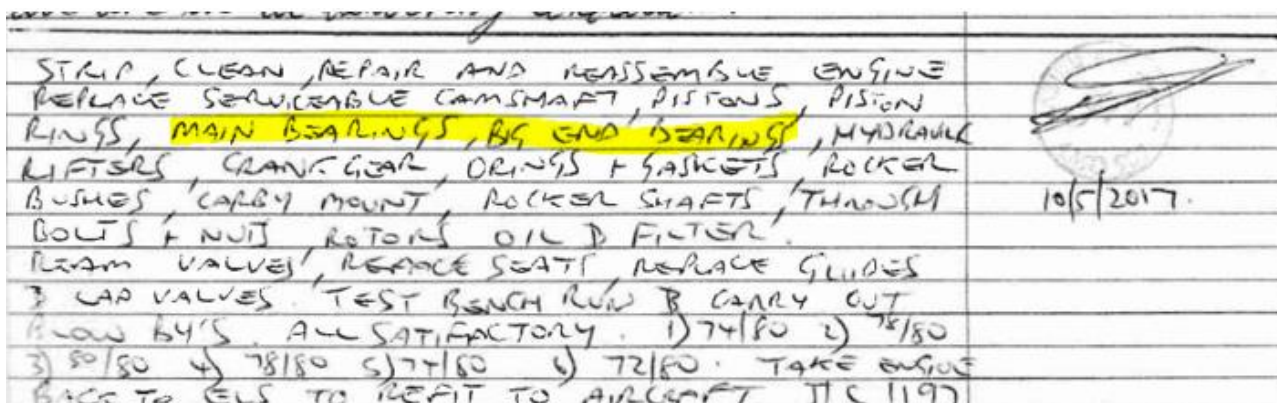 STRIP, CLEAN, REPAIR AND REASSEMBLE ENGINE
REPLACE SERVICEABLE CAMSHAFT, PISTONS, PISTON
RINGS, MAIN BEARINGS, BIG END BEARINGS, HYDRAULIC
LIFTERS, CRANK GEAR, ORINGS + GASKETS, ROCKER
BUSHES, CARBY MOUNT, ROCKER SHAFTS, THROUGH
10/5/2017.
BOLTS + NUTS, ROTORS OIL & FILTER.
REAM VALVES, REPLACE SEATS, REPLACE GUIDES
& LAP VALVES. TEST BENCH RUN & CARRY OUT
BLOW BY'S. ALL SATIFACTORY. 1) 74/80 2) 78/80
3) 80/80 4) 78/80 5) 77/80 6) 72/80. TAKE ENGINE
BACK TO TO REFIT TO AIRCRAFT